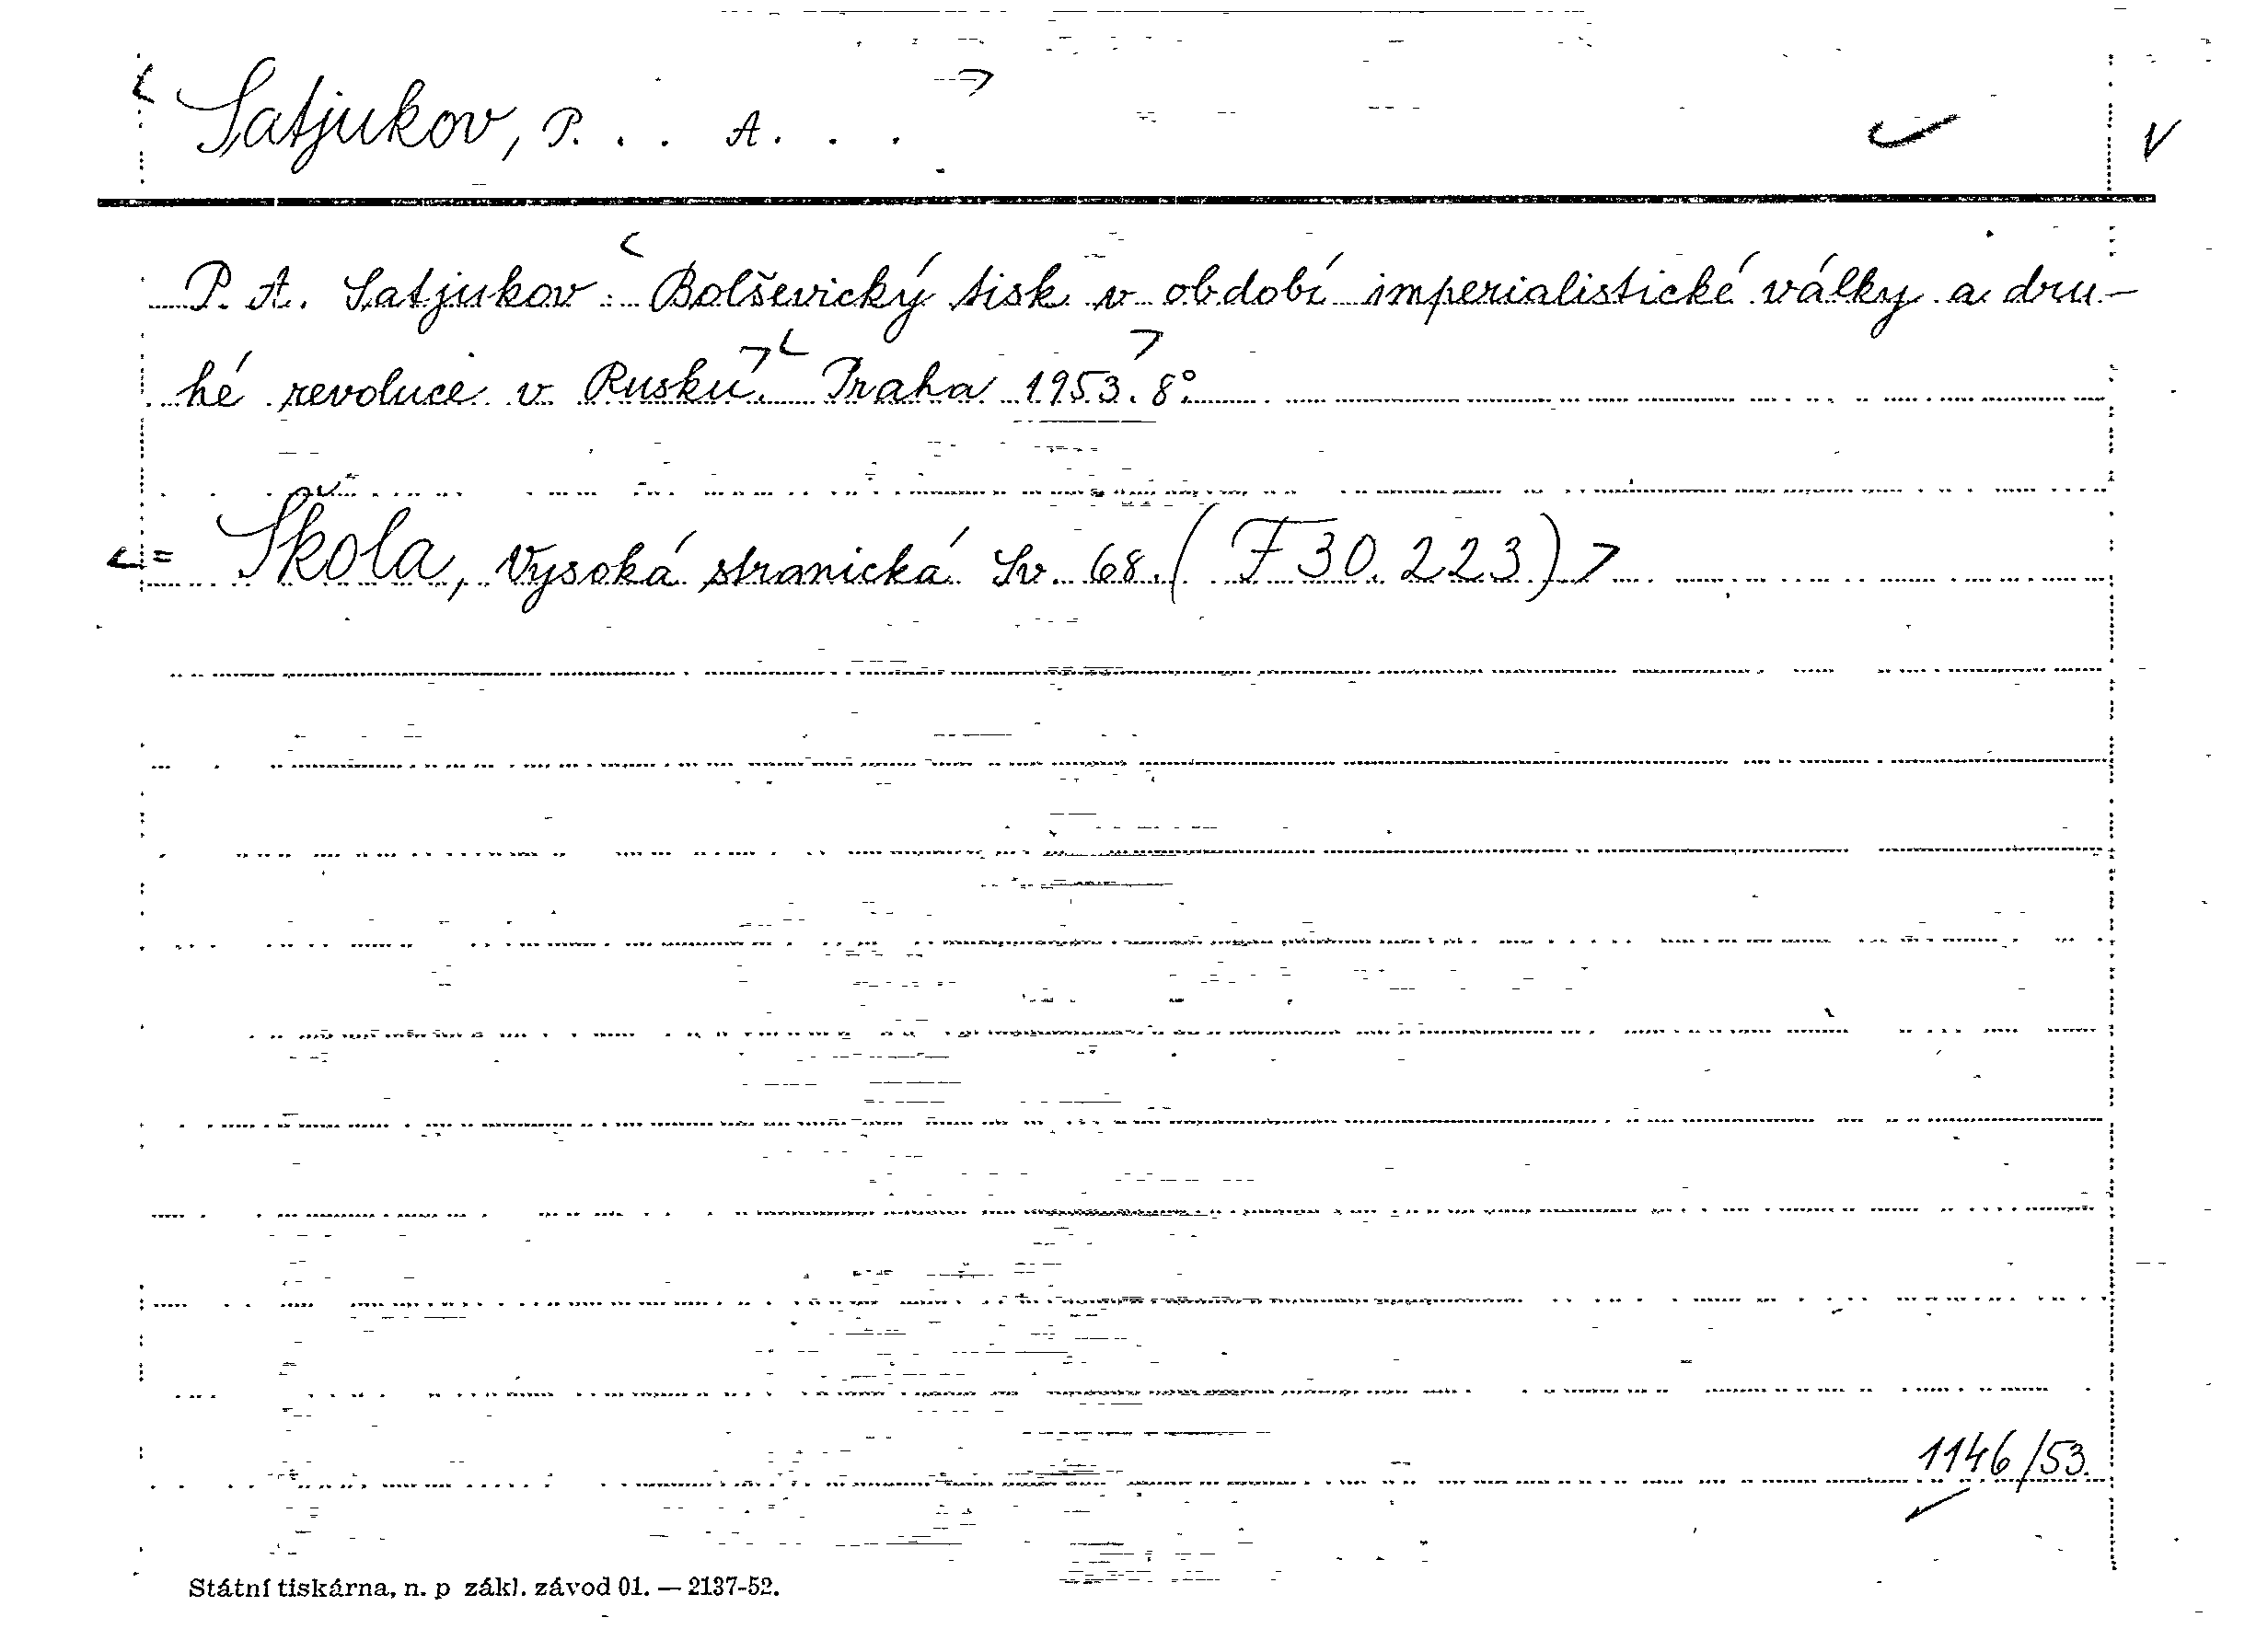 < Satjukov, P. . . A. . . >
P. A. Satjukov: < Bolševický tisk v období imperialistické války a dru-
hé revoluce v Rusku. > < Praha 1953. > 8°.
< = Škola, Vysoká stranická Sv. 68. (F 30.223) >
1146/53.
Státní tiskárna, n. p zákl. závod 01. — 2137-52.